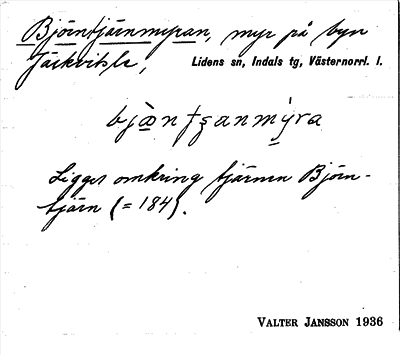 Björntjärnmyran, myr på byn
Järkvitsle, Lidens sn, Indals tg, Västernorrl. l.
bjæ̀nʃʂanmýra
Ligger omkring tjärnen Björn-
tjärn (= 184).
VALTER JANSSON 1936